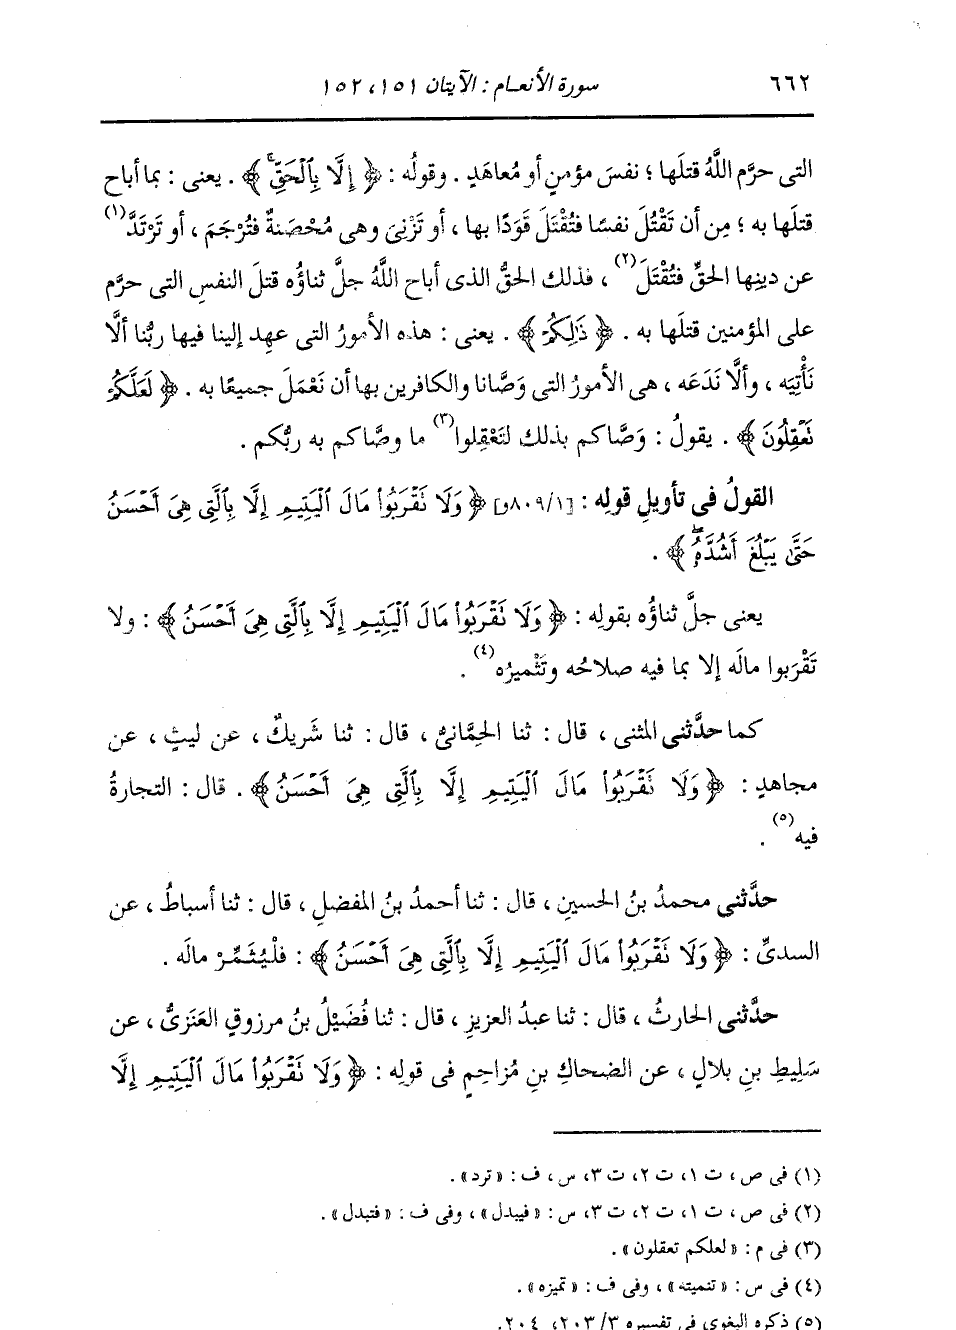 ٦٦٢ سورة الأنعام : الآيتان ١٥١، ١٥٢
التى حرَّم اللَّهُ قتلَها ؛ نفسَ مؤمنٍ أو مُعاهَدٍ . وقولُه : ﴿ إِلَّا بِٱلْحَقِّۚ ﴾ . يعنى : بما أباح
قتلَها به ؛ مِن أن تَقْتُلَ نفسًا فتُقْتَلَ قَوَدًا بها ، أو تَزْنِىَ وهى مُحْصَنةٌ فتُرْجَمَ ، أو تَرْتَدَّ(١)
عن دينِها الحقِّ فتُقْتَلَ(٢) ، فذلك الحقُّ الذى أباح اللَّهُ جلَّ ثناؤُه قتلَ النفسِ التى حرَّم
على المؤمنين قتلَها به . ﴿ ذَٰلِكُمْ ﴾ . يعنى : هذه الأمورُ التى عهِد إلينا فيها ربُّنا ألَّا
نَأْتِيَه ، وألَّا نَدَعَه ، هى الأمورُ التى وَصَّانا والكافرين بها أن نَعْمَلَ جميعًا به . ﴿ لَعَلَّكُمْ
نَعْقِلُونَ ﴾ . يقولُ : وَصَّاكم بذلك لتَعْقِلوا(٣) ما وصَّاكم به ربُّكم .
القولُ فى تأويلِ قولِه : [٨٠٩/١و] ﴿ وَلَا نَقْرَبُوا۟ مَالَ ٱلْيَتِيمِ إِلَّا بِٱلَّتِى هِىَ أَحْسَنُ
حَتَّىٰ يَبْلُغَ أَشُدَّهُۥۖ ﴾ .
يعنى جلَّ ثناؤُه بقولِه : ﴿ وَلَا نَقْرَبُوا۟ مَالَ ٱلْيَتِيمِ إِلَّا بِٱلَّتِى هِىَ أَحْسَنُ ﴾ : ولا
تَقْرَبوا مالَه إلا بما فيه صلاحُه وتَثْميرُه(٤) .
كما حدَّثنى المثنى ، قال : ثنا الحِمَّانىُّ ، قال : ثنا شَريكٌ ، عن ليثٍ ، عن
مجاهدٍ : ﴿ وَلَا نَقْرَبُوا۟ مَالَ ٱلْيَتِيمِ إِلَّا بِٱلَّتِى هِىَ أَحْسَنُ ﴾ . قال : التجارةُ
فيه(٥) .
حدَّثنى محمدُ بنُ الحسينِ ، قال : ثنا أحمدُ بنُ المفضلِ ، قال : ثنا أسباطُ ، عن
السدىِّ : ﴿ وَلَا نَقْرَبُوا۟ مَالَ ٱلْيَتِيمِ إِلَّا بِٱلَّتِى هِىَ أَحْسَنُ ﴾ : فلْيُثَمِّرْ مالَه .
حدَّثنى الحارثُ ، قال : ثنا عبدُ العزيزِ ، قال : ثنا فُضَيْلُ بنُ مرزوقٍ العَنَزىُّ ، عن
سَلِيطِ بنِ بلالٍ ، عن الضحاكِ بنِ مُزاحِمٍ فى قولِه : ﴿ وَلَا نَقْرَبُوا۟ مَالَ ٱلْيَتِيمِ إِلَّا
(١) فى ص ، ت ١، ت ٢، ت ٣، س ، ف : « ترد » .
(٢) فى ص ، ت ١، ت ٢، ت ٣، س : « فيبدل » ، وفى ف : « فتبدل » .
(٣) فى م : « لعلكم تعقلون » .
(٤) فى س : « تنميته » ، وفى ف : « تميزه » .
(٥) ذكره البغوى فى تفسيره ٢٠٣/٣، ٢٠٤.